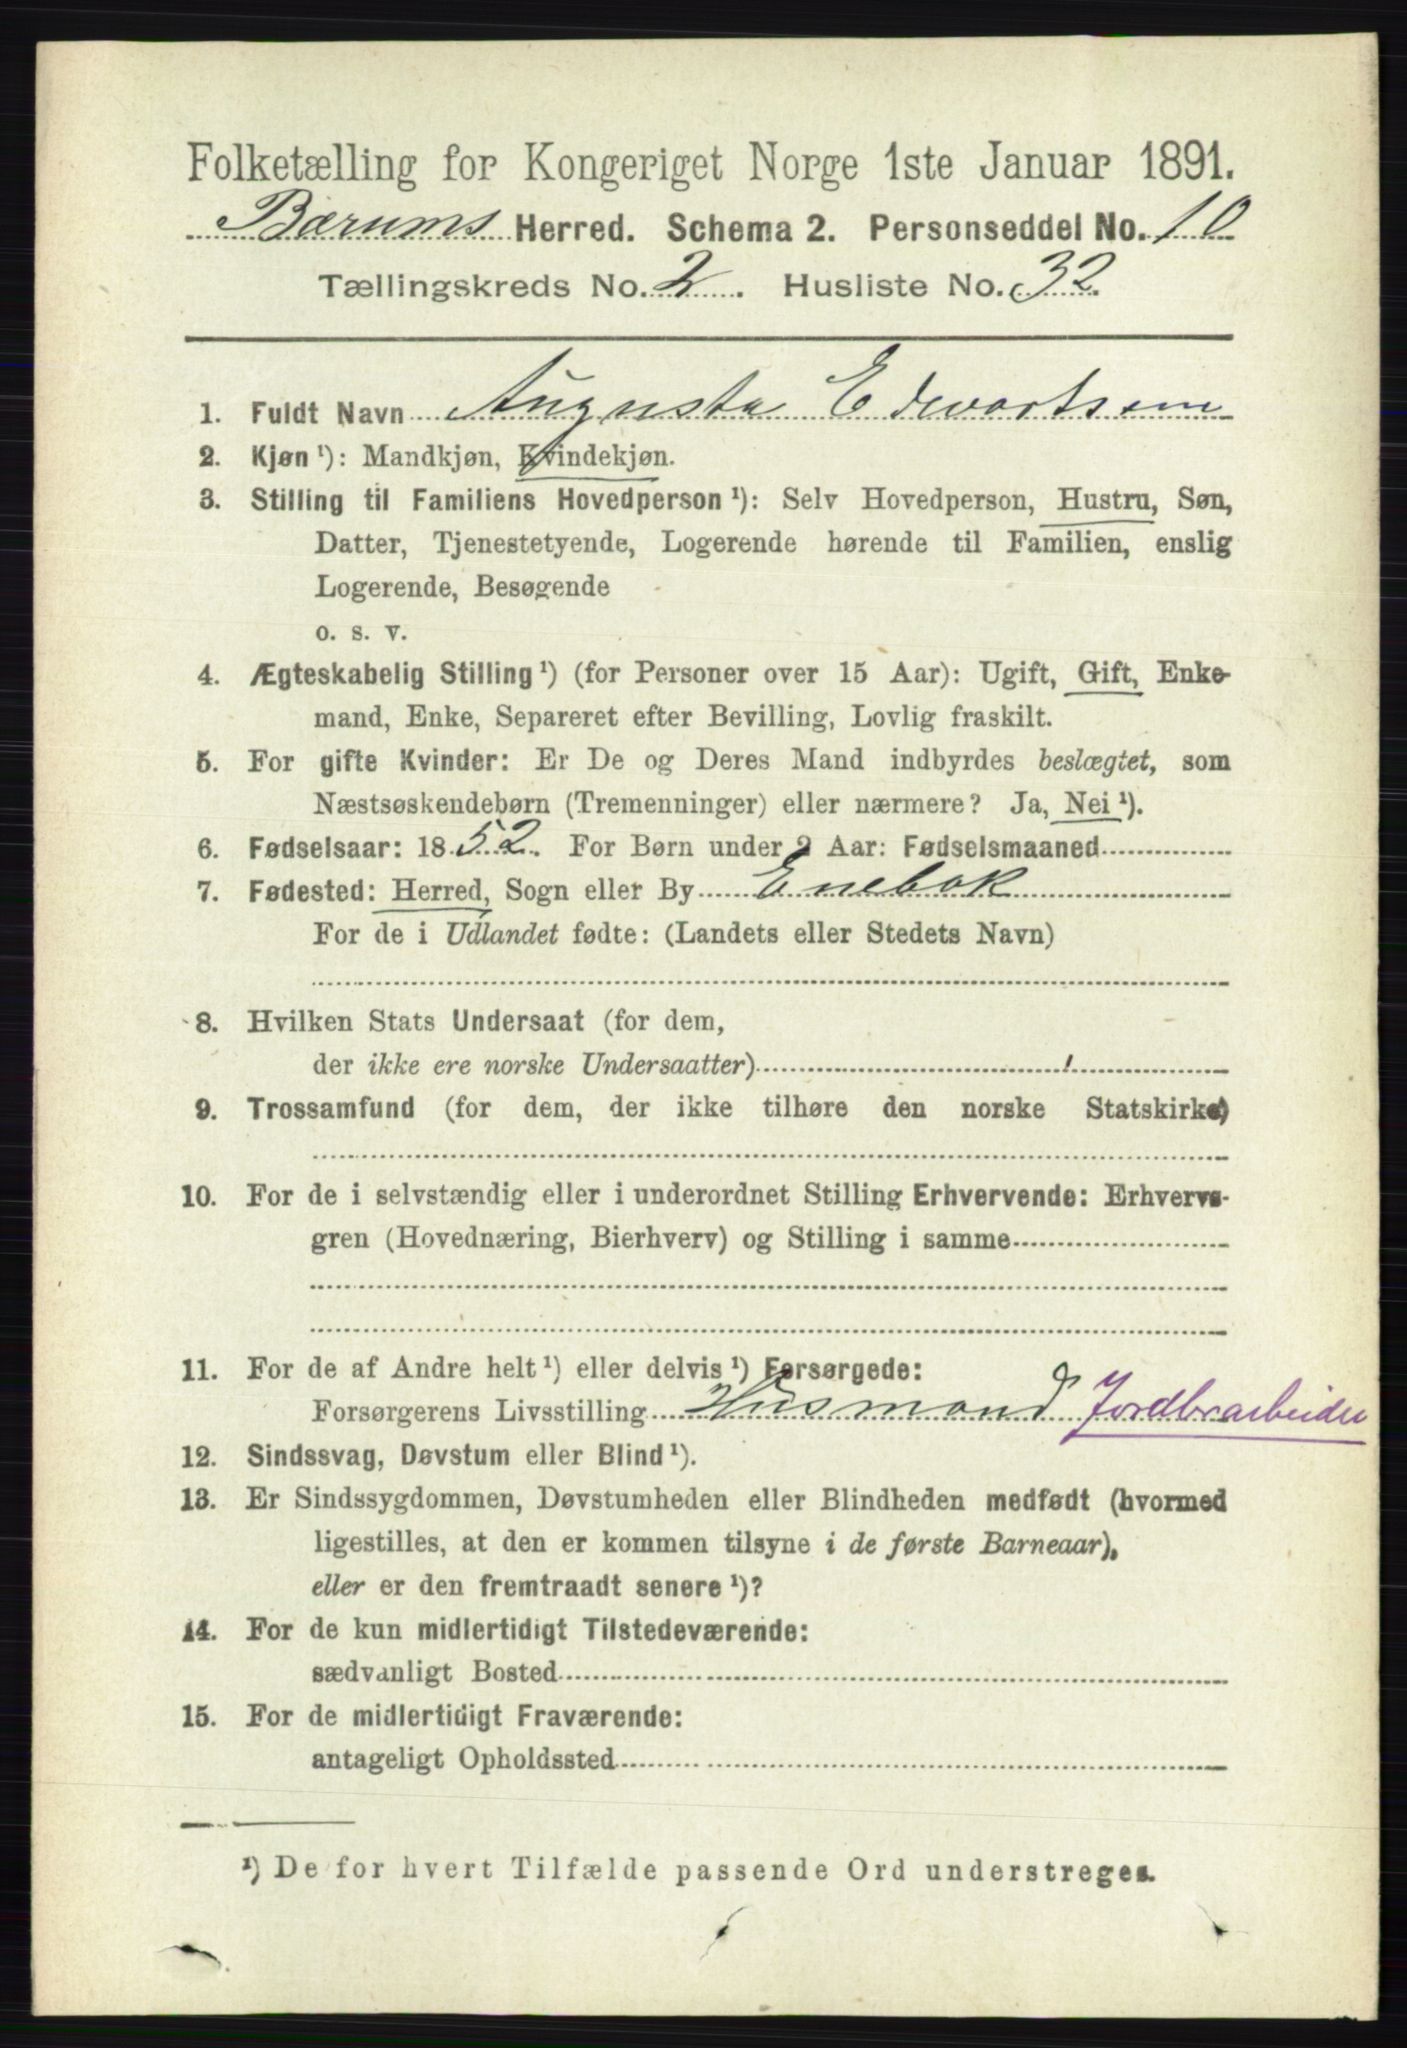 Folketælling for Kongeriget Norge 1ste Januar 1891.
Bærums Herred. Schema 2. Personseddel No. 10
Tællingskreds No. 2. Husliste No. 32.
1. Fuldt Navn Augusta Edvartsen
2. Kjøn ¹): Mandkjøn, Kvindekjøn.
3. Stilling til Familiens Hovedperson ¹): Selv Hovedperson, Hustru, Søn,
Datter, Tjenestetyende, Logerende hørende til Familien, enslig
Logerende, Besøgende
o. s. v.
4. Ægteskabelig Stilling ¹) (for Personer over 15 Aar): Ugift, Gift, Enke-
mand, Enke, Separeret efter Bevilling, Lovlig fraskilt.
5. For gifte Kvinder: Er De og Deres Mand indbyrdes beslægtet, som
Næstsøskendebørn (Tremenninger) eller nærmere? Ja, Nei ¹).
6. Fødselsaar: 1852. For Børn under 2 Aar: Fødselsmaaned
7. Fødested: Herred, Sogn eller By Enebak
For de i Udlandet fødte: (Landets eller Stedets Navn)
8. Hvilken Stats Undersaat (for dem,
der ikke ere norske Undersaatter)
9. Trossamfund (for dem, der ikke tilhøre den norske Statskirke)
10. For de i selvstændig eller i underordnet Stilling Erhvervende: Erhvervs-
gren (Hovednæring, Bierhverv) og Stilling i samme
11. For de af Andre helt ¹) eller delvis ¹) Forsørgede:
Forsørgerens Livsstilling Husmand Jordbrarbeider
12. Sindssvag, Døvstum eller Blind ¹).
13. Er Sindssygdommen, Døvstumheden eller Blindheden medfødt (hvormed
ligestilles, at den er kommen tilsyne i de første Barneaar),
eller er den fremtraadt senere ¹)?
14. For de kun midlertidigt Tilstedeværende:
sædvanligt Bosted
15. For de midlertidigt Fraværende:
antageligt Opholdssted
¹) De for hvert Tilfælde passende Ord understreges.